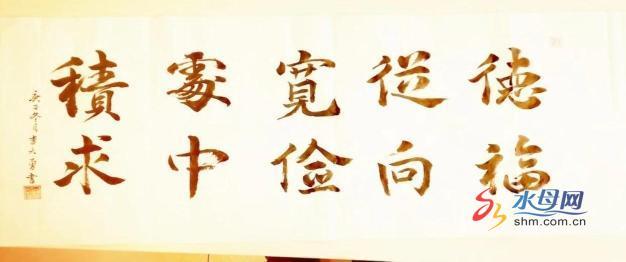 德從寬處積
福向儉中求
庚子冬月李大勇書
水母网
shm.com.cn